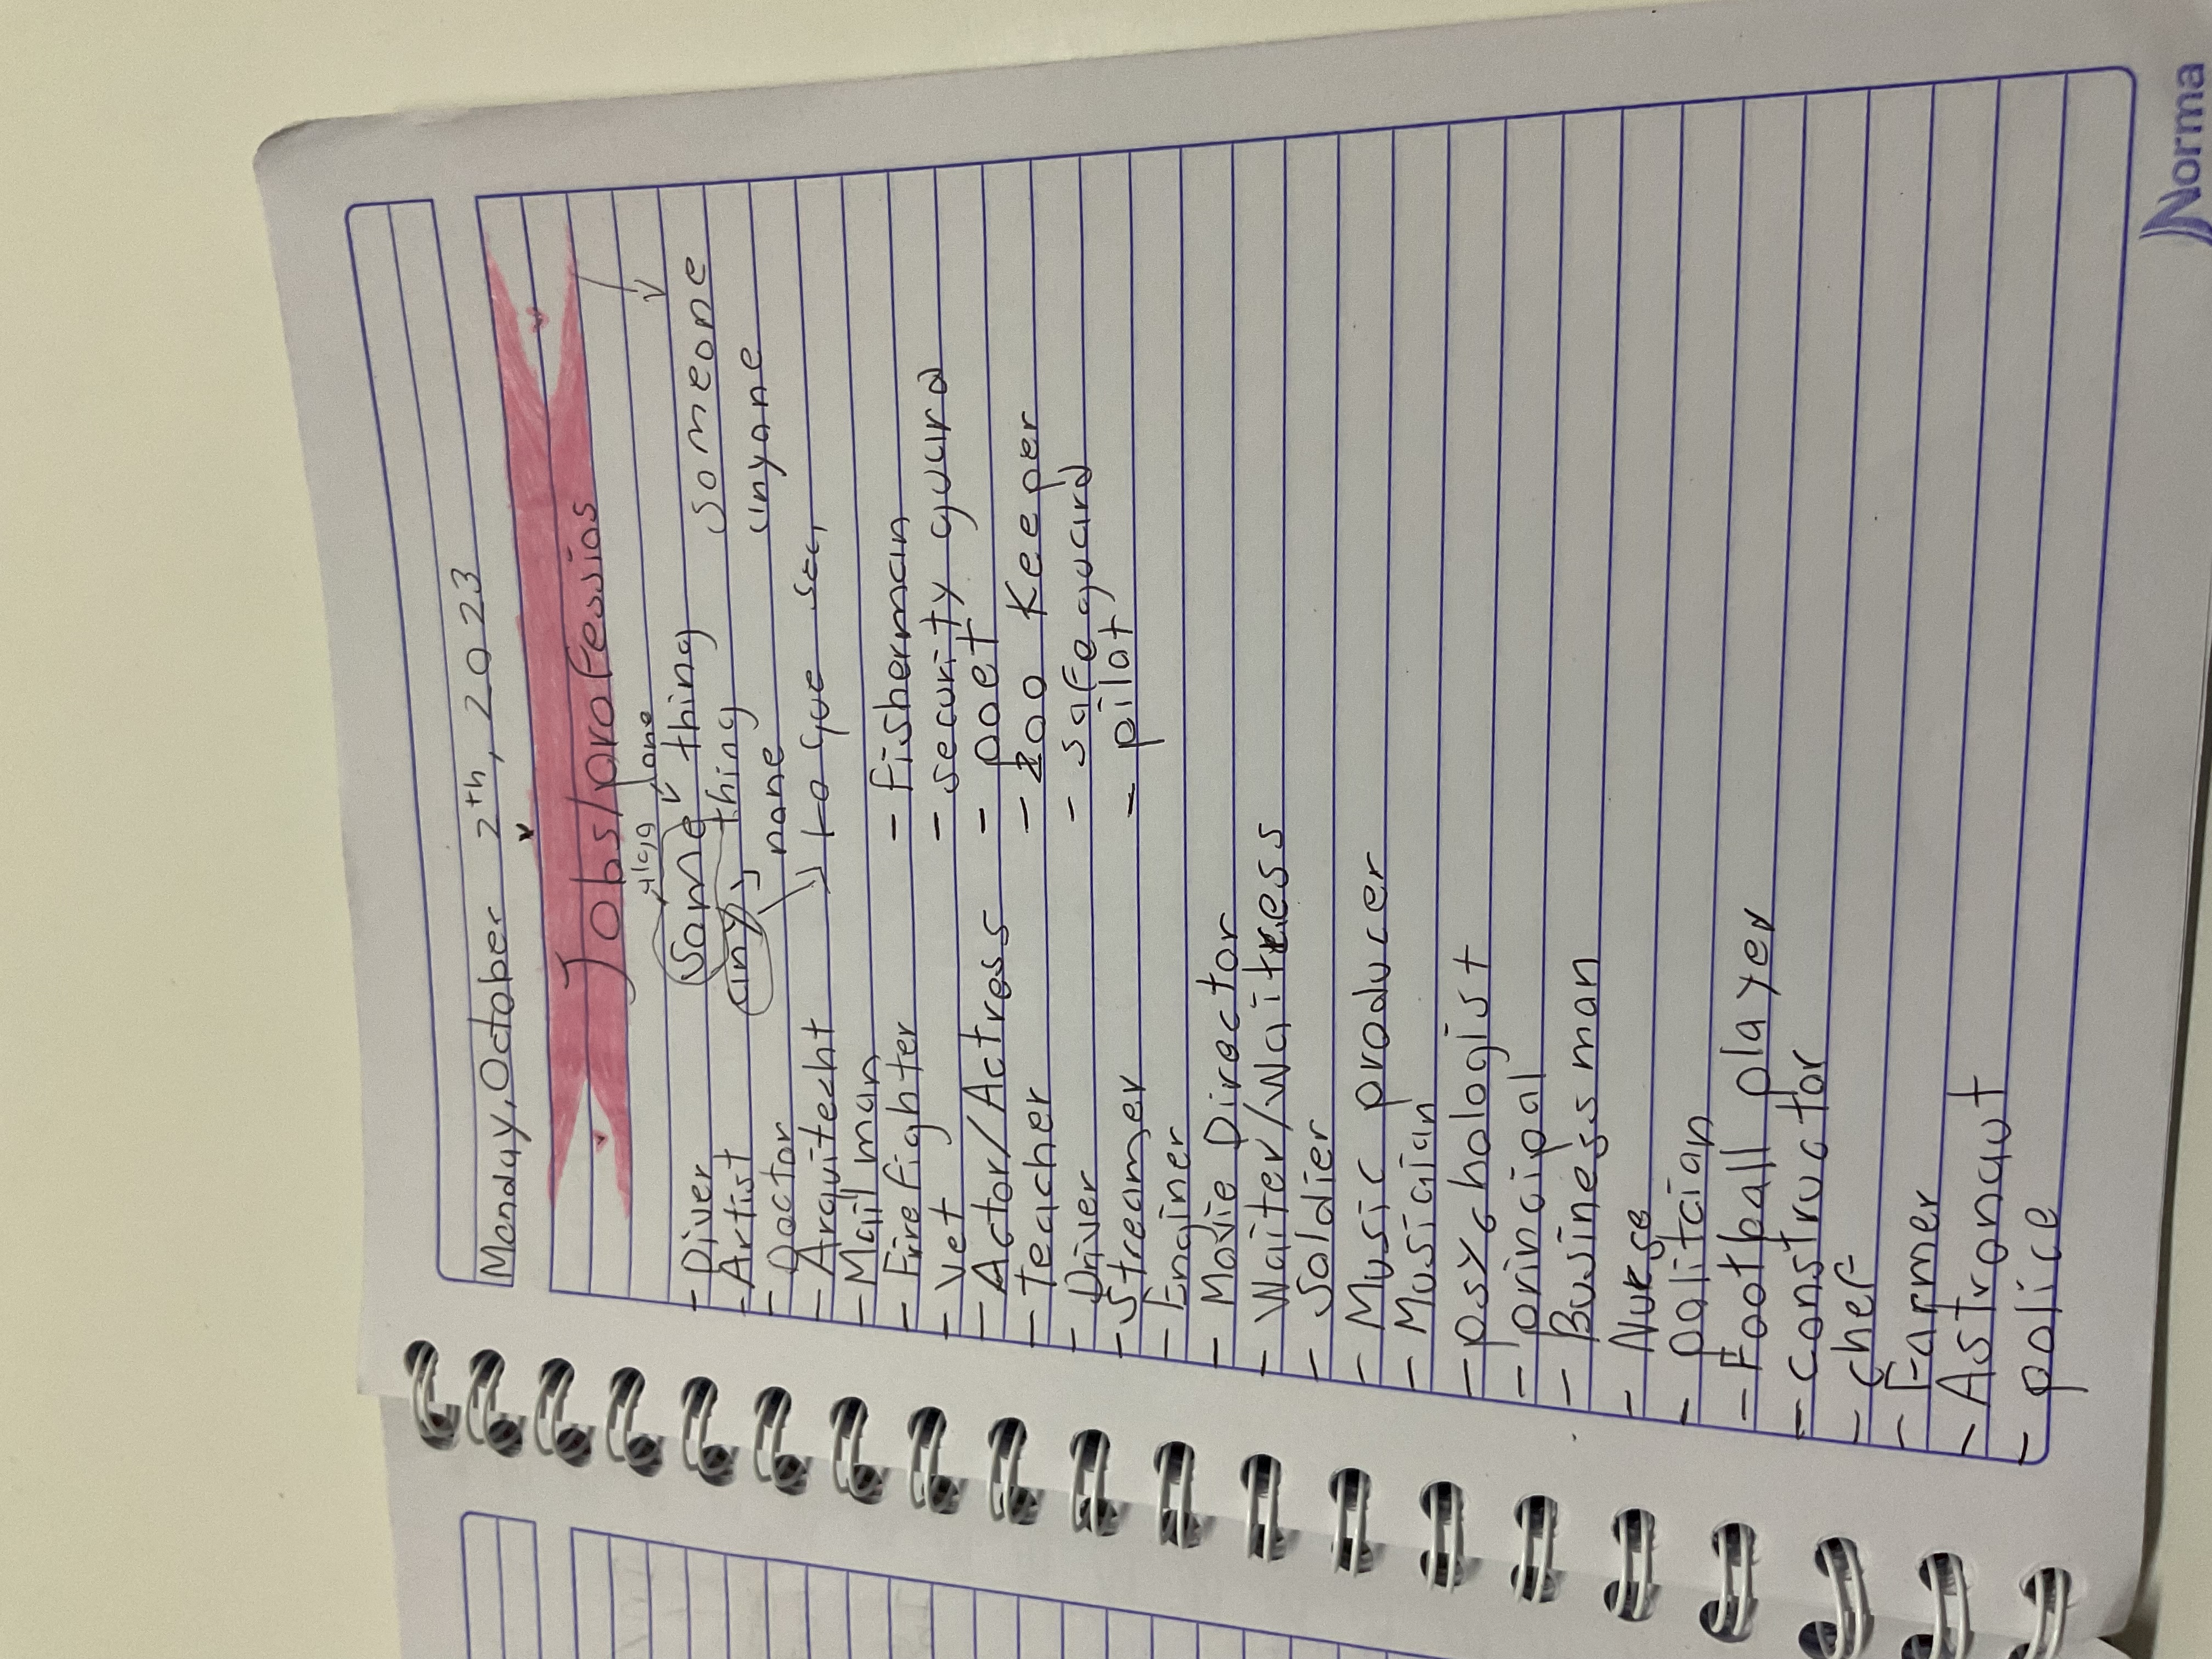 Monday, October 2th, 2023
Jobs/professios
algo one
Some thing someone
any thing anyone
none
lo que sea,
- Diver
- Artist
- Doctor
- Arquitecht
- Mail man
- Fire Fighter
- Vet
- Actor/Actress
- Teacher
- Driver
- Streamer
- Enginer
- Movie Director
- Waiter/Waitress
- Soldier
- Music producer
- Musician
- psychologist
- principal
- Business man
- Nurse
- politcian
- Football player
- constructor
- chef
- Farmer
- Astronaut
- police
- fisherman
- security guard
- poet
- zoo Keeper
- safeguard
- pilot
Norma